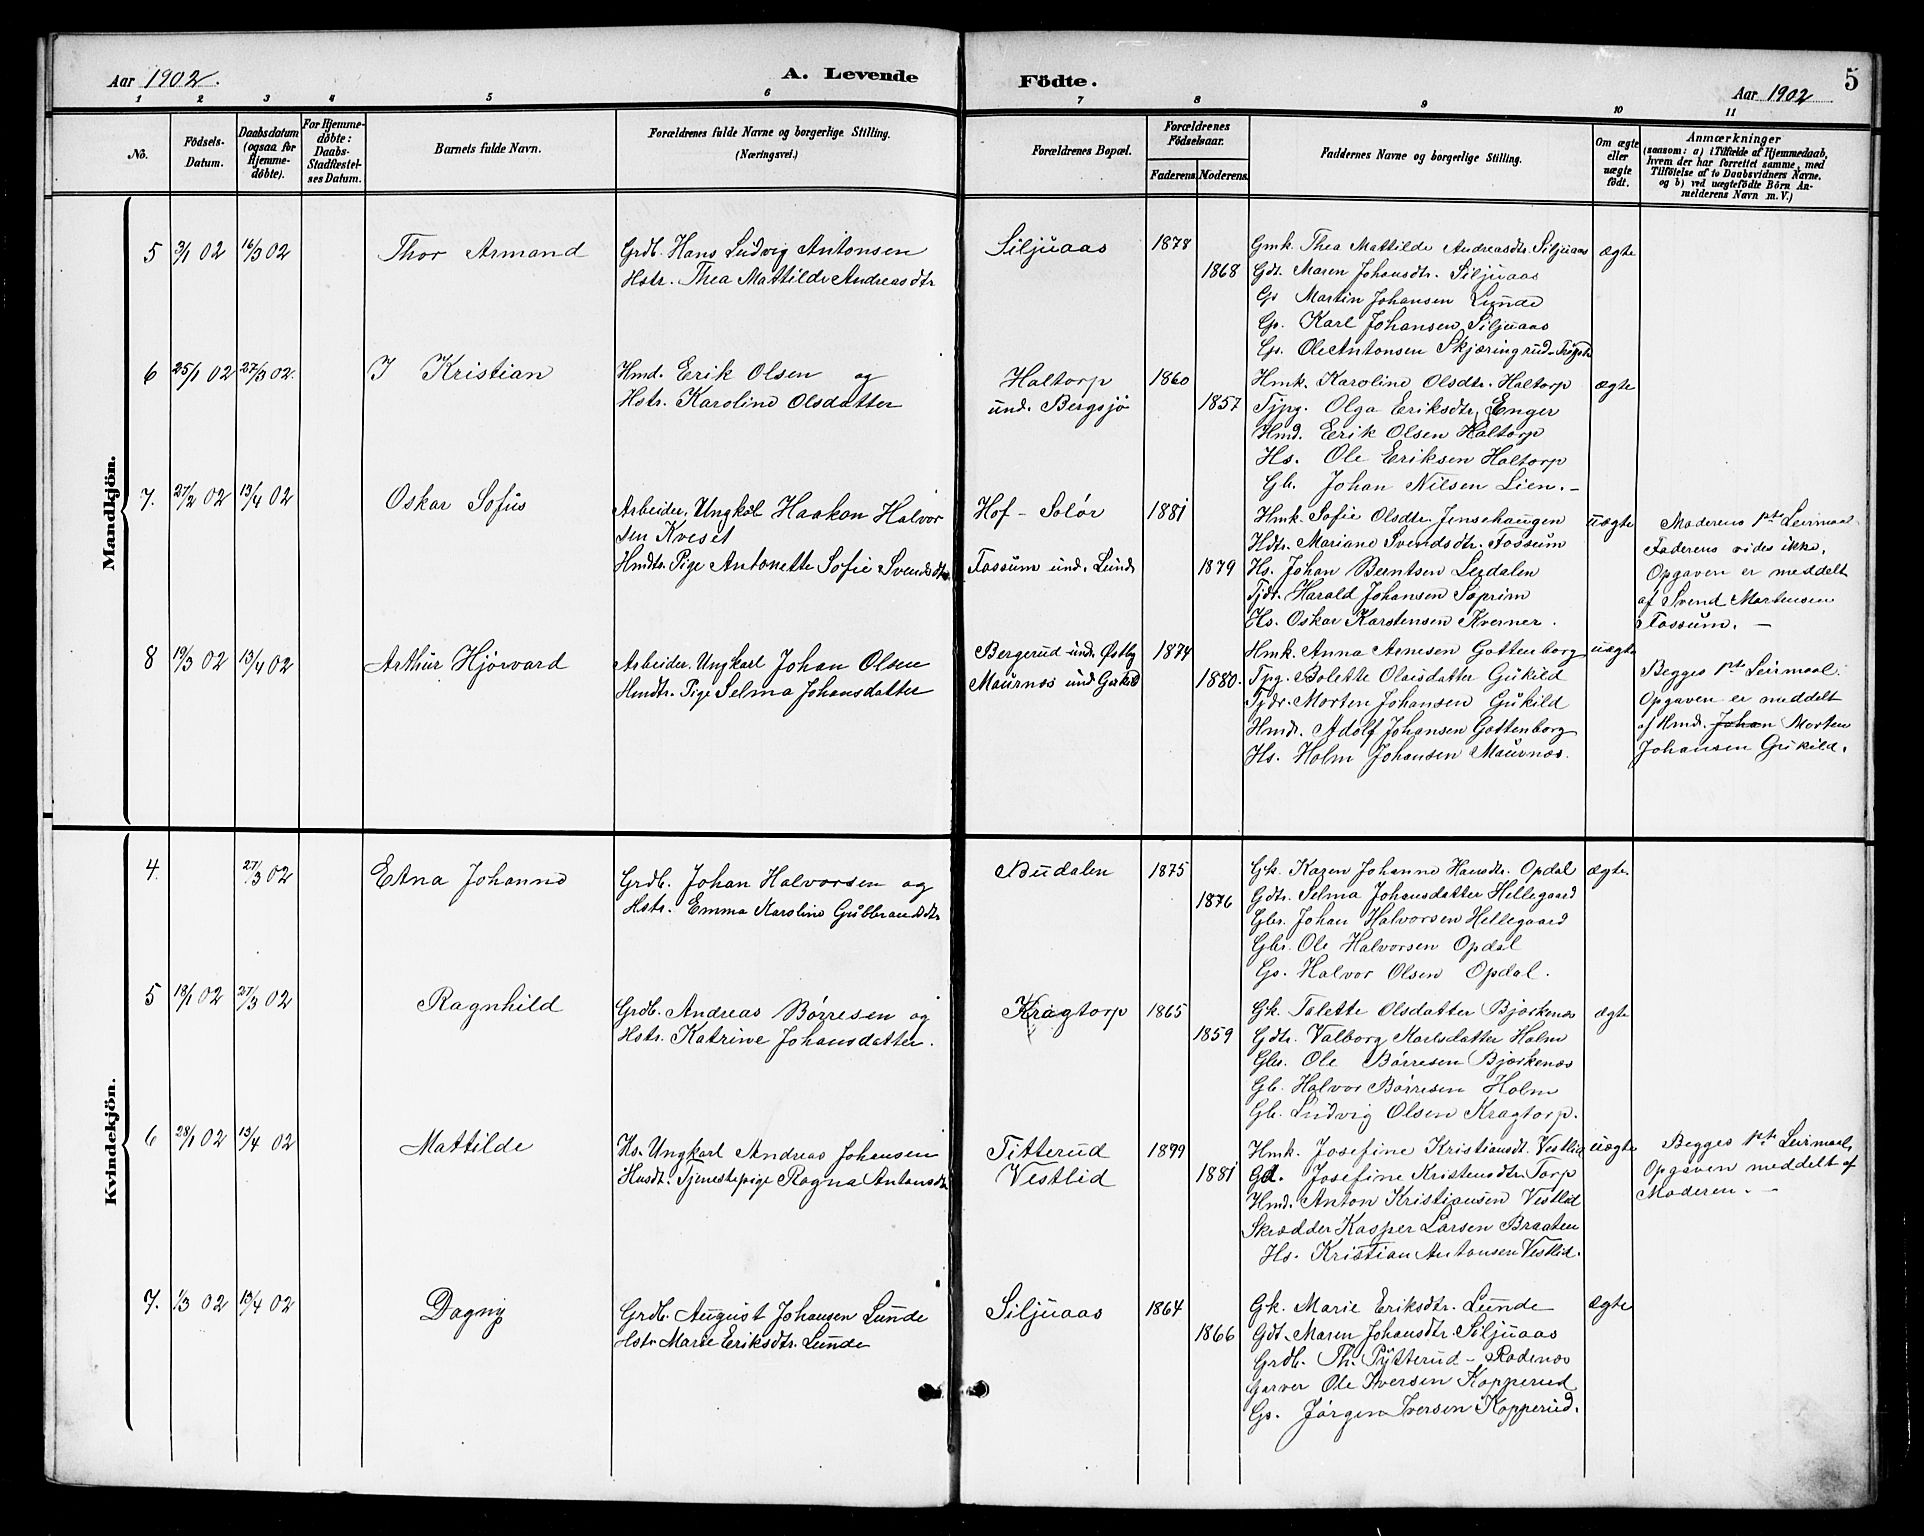 Aar 1902.
A. Levende
Födte.
5
Aar 1902
1 2 3 4 5 6 7 8 9 10 11
No.
Födsels-
Datum.
Daabsdatum
(ogsaa for
Hjemme-
döbte).
For Hjemme-
döbte:
Daabs-
Stadfestel-
ses Datum.
Barnets fulde Navn.
Forældrenes fulde Navne og borgerlige Stilling.
(Næringsvei.)
Forældrenes Bopæl.
Forældrenes
Födselsaar.
Faderens. Moderens.
Faddernes Navne og borgerlige Stilling.
Om ægte
eller
uægte
födt.
Anmærkninger
(saasom: a) i Tilfælde af Hjemmedaab,
hvem der har forrettet samme, med
Tilföielse af to Daabsvidners Navne.
og b) ved uægtefödte Börn An-
melderens Navn m. V.)
Mandkjön.
5 3/1 02 16/3 02 Thor Armand
Grdb. Hans Ludvig Antonsen
Hstr. Thea Mattilde Andreasdtr
Siljuaas 1878
1868
Gmk. Thea Mattilde Andreasdtr. Siljuaas ægte
Gdt. Maren Johansdtr. Siljuaas
Gs Martin Johansen Lunde
Gs. Karl Johansen Siljuaas
Gs. Ole Antonsen Skjæringrud
6 25/1 02 27/3 02. I Kristian
Hmd. Erik Olsen og
Hstr. Karoline Olsdatter
Haltorp 1860
und. Bergsjö 1857
Hmk. Karoline Olsdtr. Haltorp ægte
Tjpg. Olga Eriksdtr. Enger
Hmd. Erik Olsen Haltorp
Hs. Ole Eriksen Haltorp
Gb. Johan Nilsen Lien. –
7. 27/2 02 13/4 02 Oskar Sofus
Arbeider, Ungkal Haakon Halvor
sen Kveset
Hmdtr. Pige Antonette Sofie Svendsdtr.
Hof – Solør 1881
Fossum und. Lund 1879
Hmk. Sofie Olsdtr. Jensehaugen uægte
Hdtr. Mariane Svendsdtr. Fossum
Hs. Johan Berntsen
Tjdr. Harald Johansen
Hs. Oskar Karstensen Kverner.
Moderens 1ste Leirmaal
Faderens vides ikke.
Opgaven er meddelt
af Svend Mortensen
Fossum. –
8 19/3 02 13/4 02 Arthur Hjörvard
Arbeider, Ungkarl Johan Olsen
Hmdtr. Pige Selma Johansdatter
Bergerud und. Østby 1874
Maurnes und Gukild 1880.
Hmk. Anna Arnesen Gottenborg uægte
Tpg. Bolette Olaisdatter Gukild
Tjdr. Morten Johansen Gukild
Hmd. Adolf Johansen Gottenborg
Hs. Holm Johansen Maurnes.
Begges 1ste Leirmaal.
Opgaven er meddelt
af Hmd. Johan Morten
Johansen Gukild.
Kvindekjön.
4. 27/3 02 Etna Johanne
Grdb. Johan Halvorsen og
Hstr. Emma Karoline Gulbrandsdtr
Budalen 1875
1876
Gk. Karen Johanne Hansdtr. Opdal ægte.
Gdtr. Selma Johansdatter Hellegaard
Gbr. Johan Halvorsen Hellegaard
Gbr. Ole Halvorsen Opdal
Gs. Halvor Olsen Opdal.
5 18/1 02 27/3 02 Ragnhild
Grdb. Andreas Børresen og
Hstr. Katrine Johansdatter.
Kragtorp 1865
1859
Gk. Talette Olsdatter Bjørkenes ægte
Gdtr. Valborg Karlsdatter Holm
Gbr. Ole Børresen Bjørkenes
Gb. Halvor Børresen Holm
Gb. Ludvig Olsen Kragtorp.
6 28/1 02 13/4 02 Mattilde
Hs. Ungkarl Andreas Johansen
Husdt. Tjenestepige Ragna Antonsdtr
Titterud 1879
Vestlid 1881
Hmk. Josefine Kristiansdt. Vestlid uægte
Gd. Josefine Kristensdtr. Torp
Hmd. Anton Kristiansen Vestlid
Skrædder Kasper Larsen Braaten
Hs. Kristian Antonsen Vestlid.
Begges 1ste Leirmaal,
Opgaven meddelt af
Moderen. –
7. 1/3 02 13/4 02 Dagny
Grdb. August Johansen Lunde
Hstr. Marie Eriksdtr. Lunde
Siljuaas 1864
1866
Gk. Marie Eriksdtr. Lunde ægte
Gdt. Maren Johansdtr. Siljuaas
Grdb. Th. Pytterud – Rødenes
Garver Ole Iversen Kopperud
Gs. Jørgen Iversen Kopperud.